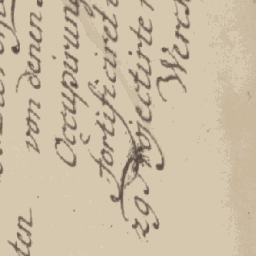 von denen
Occupirung
fortificiret
29 Projectirte
Werck
ten